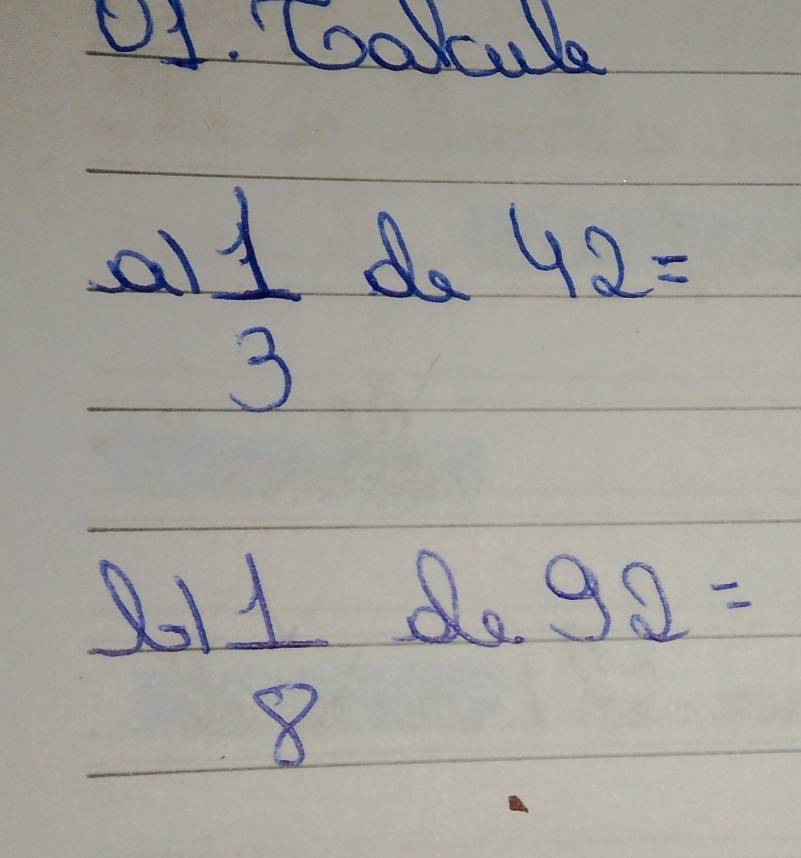 01. Calcule
a) 1 de 42=
3
b) 1 de 92=
8